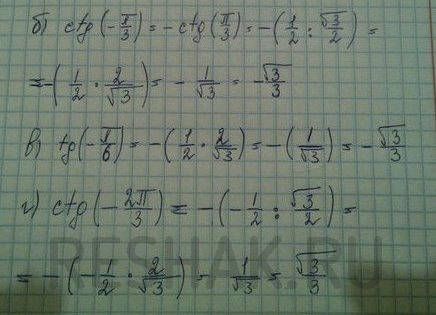 б) ctg(-π/3) = -ctg(π/3) = -(1/2 : √3/2) =
= -(1/2 · 2/√3) = - 1/√3 = -√3/3
в) tg(-π/6) = -(1/2 · 2/√3) = -(1/√3) = -√3/3
г) ctg(-2π/3) = -(-1/2 : √3/2) =
= -(-1/2 · 2/√3) = 1/√3 = √3/3
RESHAK.RU